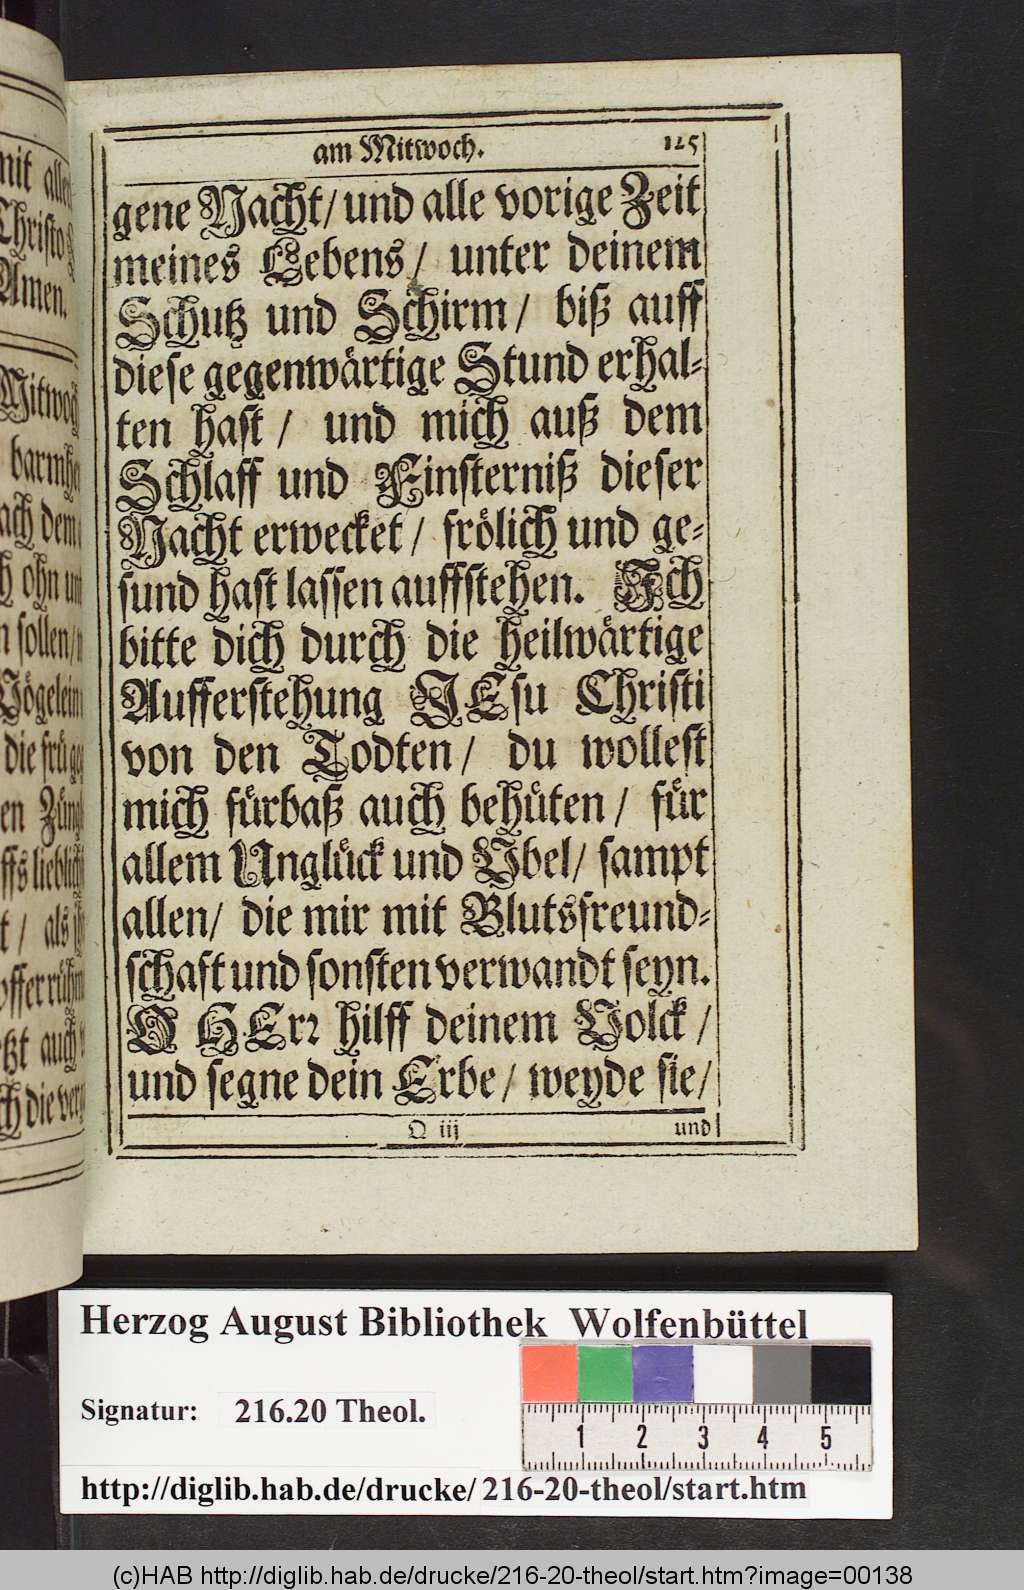 mit
Christo
Amen.
barmhe
ach dem
ohn
sollen/
Vögelein
die frü
en
als
auch
am Mitwoch. 125
gene Nacht/ und alle vorige Zeit
meines Lebens/ unter deinem
Schutz und Schirm/ biß auff
diese gegenwärtige Stund erhal-
ten hast/ und mich auß dem
Schlaff und Finsterniß dieser
Nacht erwecket/ frölich und ge-
sund hast lassen auffstehen. Ich
bitte dich durch die heilwärtige
Aufferstehung JEsu Christi
von den Todten/ du wollest
mich fürbaß auch behüten/ für
allem Unglück und Vbel/ sampt
allen/ die mir mit Blutsfreund-
schaft und sonsten verwandt seyn.
O HErr hilff deinem Volck/
und segne dein Erbe/ weyde sie/
Q iij und
Herzog August Bibliothek Wolfenbüttel
Signatur: 216.20 Theol.
1 2 3 4 5
http://diglib.hab.de/drucke/216-20-theol/start.htm
(c)HAB http://diglib.hab.de/drucke/216-20-theol/start.htm?image=00138